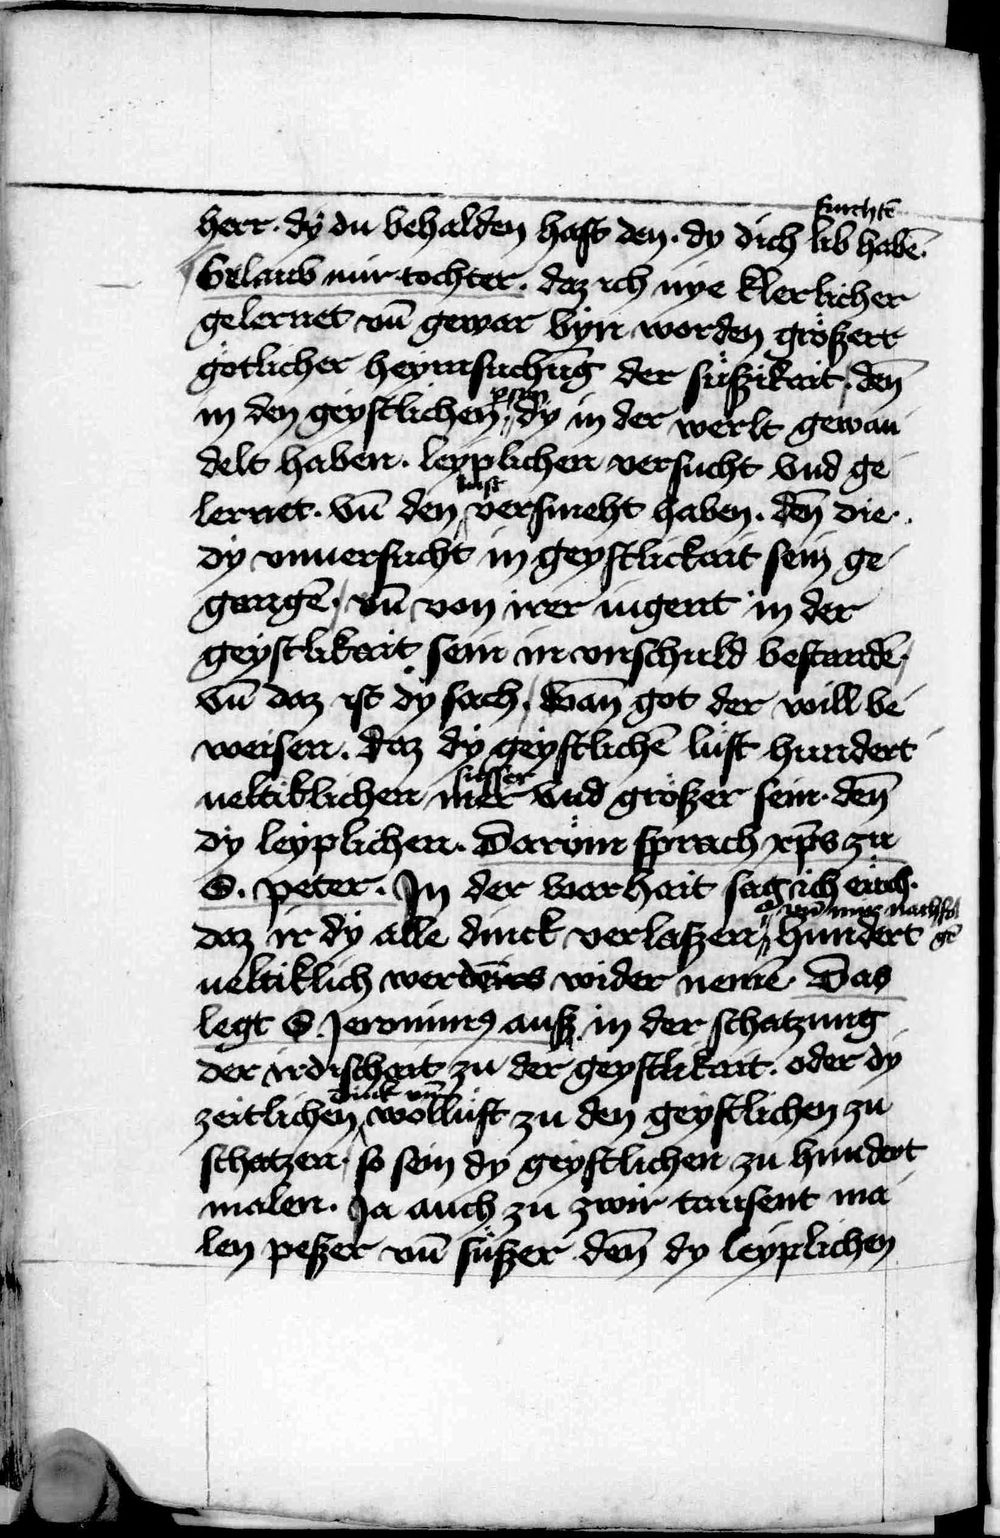 furchtē
herr. dy du behalden hast den. dy dich lib habē.
Gelaub mir tochter. daz ich nye klerlicher
gelernet vn̄ gewar byn worden größer
gotlicher heymsuchūg der süßikait. den̄
in den geystlichen dy in der werlt gewan
delt haben. leyplichen versucht vnd ge
lernet. vn̄ den lust versmeht haben. den̄ die
dy vnuersucht in geystlickait sein ge
gangē. vn̄ von irer iugent in der
geystlikait sein in vnschuld bestandē.
vn̄ daz ist dy sach. wan̄ got der will be
weisen. daz dy geystlichē lüst hundert
ueltiklichen süsser mer vnd größer sein. den̄
dy leyplichen. Darüm sprach xp̄s zu
S. peter. In der warhait sag ich eüch.
vn̄ mir nachfol
daz ir dy alle dinck verlaßen hundert gē
ueltiklich werdēts wider nemē. Das
legt S. Jeronimus auß in der schatzung
der irdischait zu der geystlikait. oder dy
dinck vn̄
zeitlichen wollüst zu den geystlichen zu
schatzen. so sein dy geystlichen zu hundert
malen. Ja auch zu zwir tausent ma
len peßer vn̄ süßer den̄ dy leyplichen